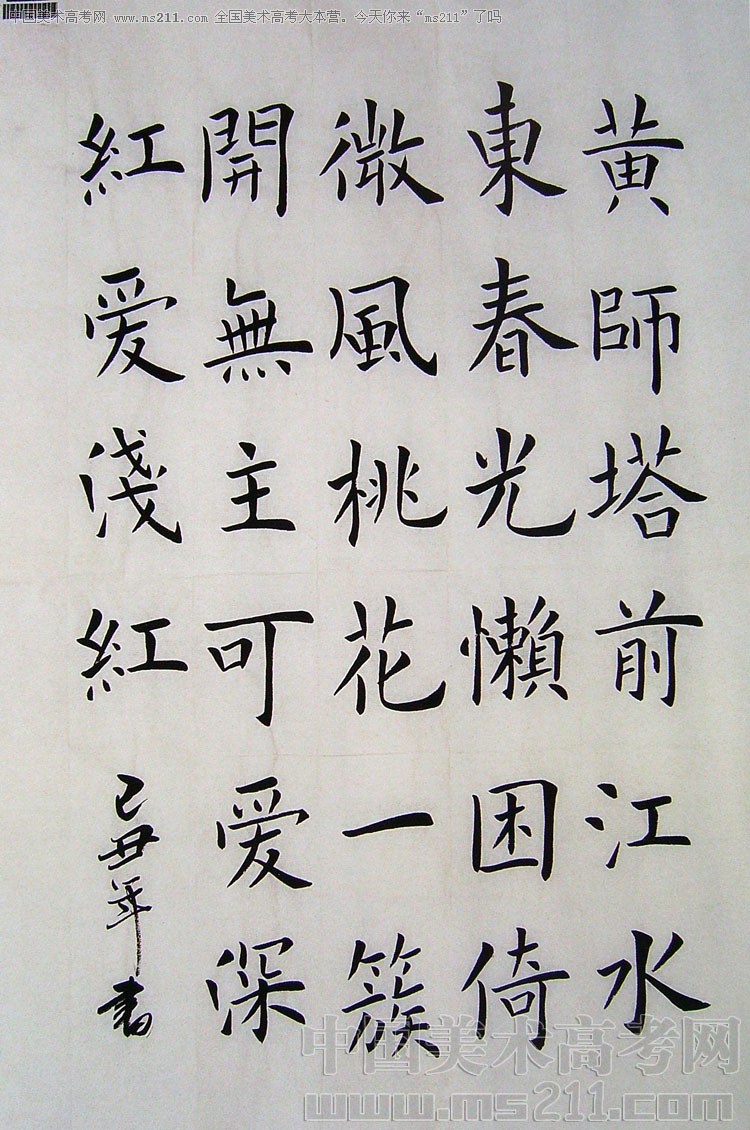 中国美术高考网 www.ms211.com 全国美术高考大本营。今天你来“ms211”了吗
黄師塔前江水
東春光懶困倚
微風桃花一簇
開無主可爱深
紅爱淺紅
己丑年書
中国美术高考网
www.ms211.com